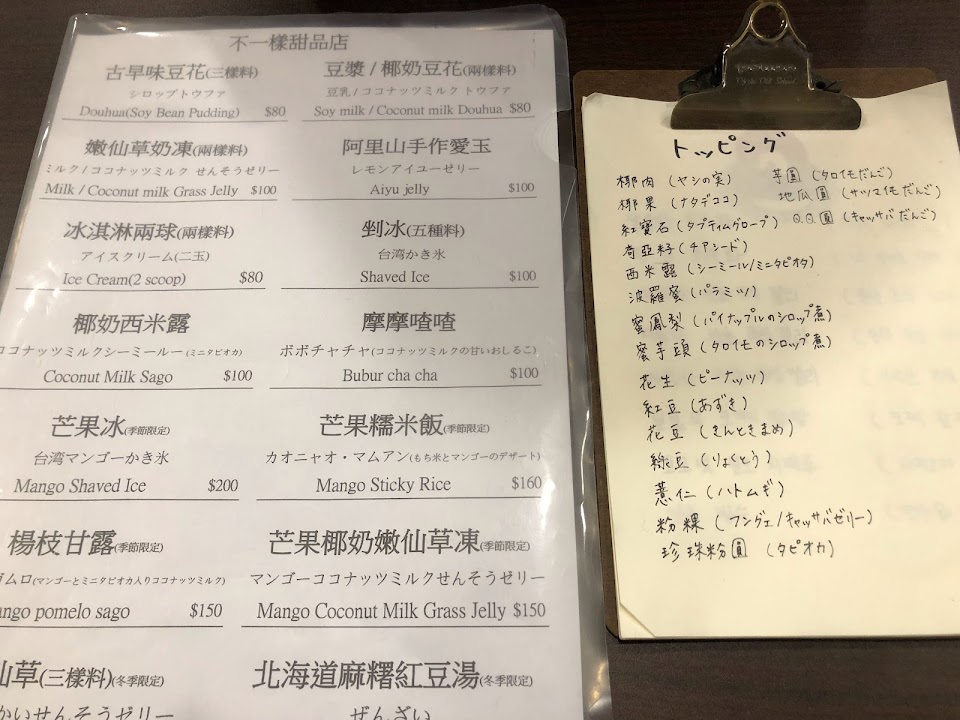 不一樣甜品店
古早味豆花(三樣料)
シロップトウファ
Douhua(Soy Bean Pudding) $80
豆漿 / 椰奶豆花(兩樣料)
豆乳 / ココナッツミルク トウファ
Soy milk / Coconut milk Douhua $80
嫩仙草奶凍(兩樣料)
ミルク / ココナッツミルク せんそうゼリー
Milk / Coconut milk Grass Jelly $100
阿里山手作愛玉
レモンアイユーゼリー
Aiyu jelly $100
冰淇淋兩球(兩樣料)
アイスクリーム(二玉)
Ice Cream(2 scoop) $80
剉冰(五種料)
台湾かき氷
Shaved Ice $100
椰奶西米露
ココナッツミルクシーミールー(ミニタピオカ)
Coconut Milk Sago $100
摩摩喳喳
ボボチャチャ(ココナッツミルクの甘いおしるこ)
Bubur cha cha $100
芒果冰(季節限定)
台湾マンゴーかき氷
Mango Shaved Ice $200
芒果糯米飯(季節限定)
カオニャオ・マムアン(もち米とマンゴーのデザート)
Mango Sticky Rice $160
楊枝甘露(季節限定)
ムロ(マンゴーとミニタピオカ入りココナッツミルク)
ango pomelo sago $150
芒果椰奶嫩仙草凍(季節限定)
マンゴーココナッツミルクせんそうゼリー
Mango Coconut Milk Grass Jelly $150
仙草(三樣料)(冬季限定)
かいせんそうゼリー
北海道麻糬紅豆湯(冬季限定)
ぜんざい
トッピング
椰肉 (ヤシの実)
椰果 (ナタデココ)
紅寶石 (タプティムグローブ)
奇亞籽 (チアシード)
西米露 (シーミール/ミニタピオタ)
波羅蜜 (パラミツ)
蜜鳳梨 (パイナップルのシロップ煮)
蜜芋頭 (タロイモのシロップ煮)
花生 (ピーナッツ)
紅豆 (あずき)
花豆 (きんときまめ)
綠豆 (りょくとう)
薏仁 (ハトムギ)
粉粿 (フングェ/キャッサバゼリー)
珍珠粉圓 (タピオカ)
芋圓 (タロイモだんご)
地瓜圓 (サツマイモだんご)
Q.Q圓 (キャッサバだんご)